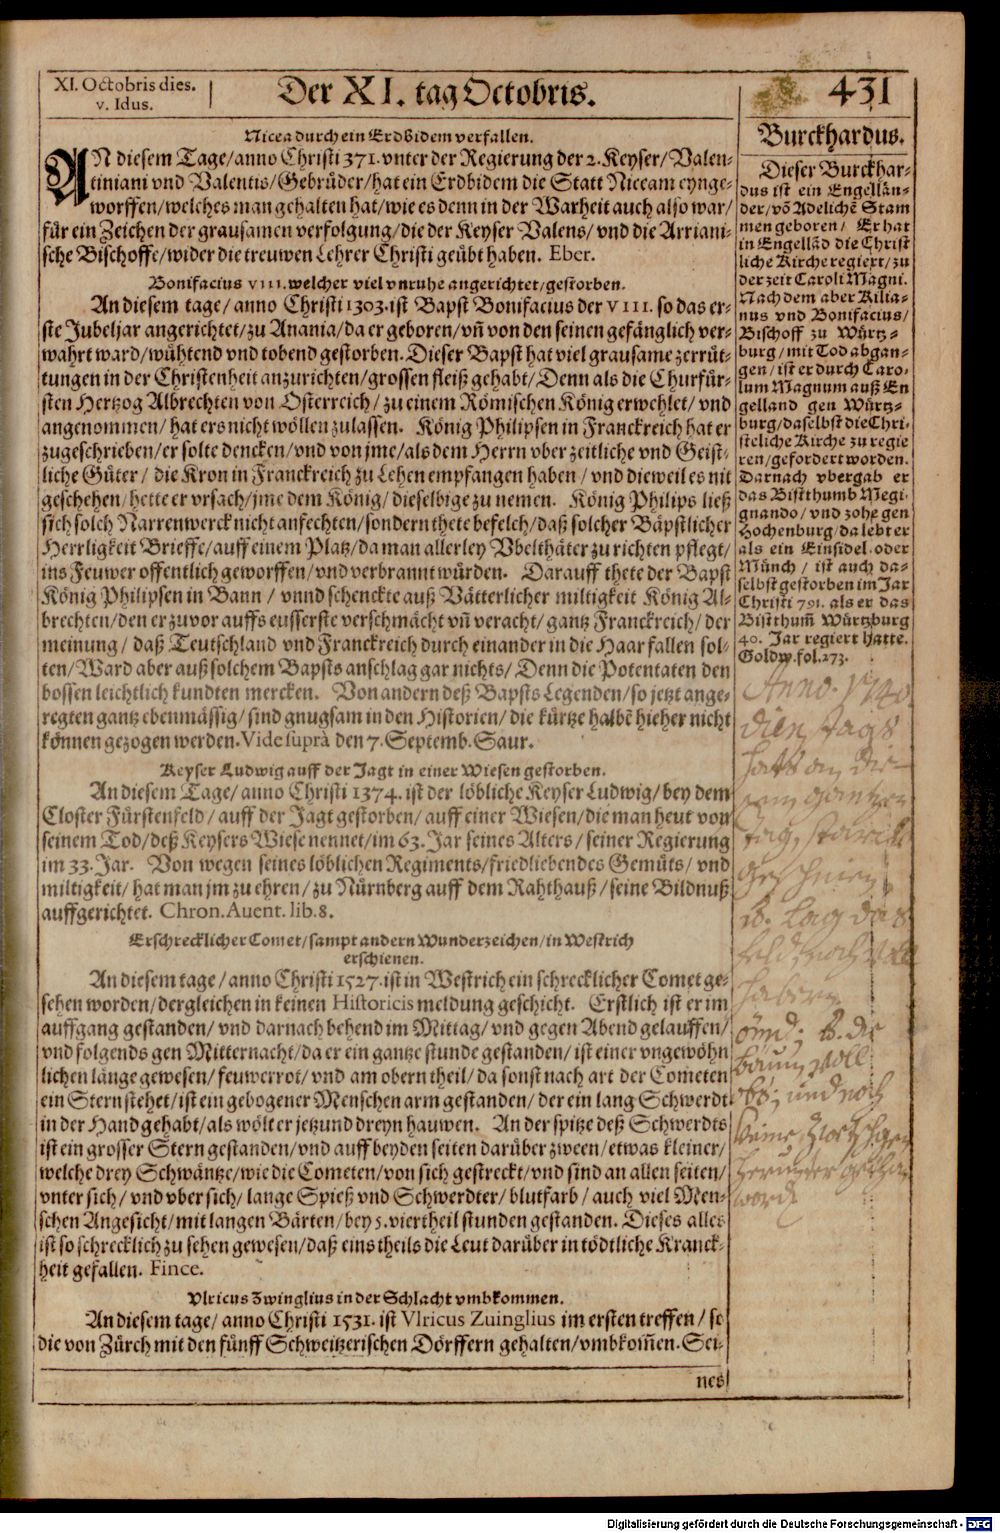 XI. Octobris dies.
v. Idus.
Der XI. tag Octobris.
431
Nicea durch ein Erdbidem verfallen.
AN diesem Tage/anno Christi 371. vnter der Regierung der 2. Keyser/Valen-
tiniani vnd Valentis/Gebrüder/hat ein Erdbidem die Statt Niceam eynge-
worffen/welches man gehalten hat/wie es denn in der Warheit auch also war/
für ein Zeichen der grausamen verfolgung/die der Keyser Valens/vnd die Arriani-
sche Bischoffe/wider die treuwen Lehrer Christi geübt haben. Eber.
Bonifacius VIII. welcher viel vnruhe angerichtet/gestorben.
An diesem tage/anno Christi 1303. ist Bapst Bonifacius der VIII. so das er-
ste Jubeljar angerichtet/zu Anania/da er geboren/vñ von den seinen gefänglich ver-
wahrt ward/wühtend vnd tobend gestorben. Dieser Bapst hat viel grausame zerrüt-
tungen in der Christenheit anzurichten/grossen fleiß gehabt/Denn als die Churfür-
sten Hertzog Albrechten von Osterreich/zu einem Römischen König erwehlet/vnd
angenommen/hat ers nicht wöllen zulassen. König Philipsen in Franckreich hat er
zugeschrieben/er solte dencken/vnd von jme/als dem Herrn vber zeitliche vnd Geist-
liche Güter/die Kron in Franckreich zu Lehen empfangen haben/vnd dieweil es nit
geschehen/hette er vrsach/jme dem König/dieselbige zu nemen. König Philips ließ
sich solch Narrenwerck nicht anfechten/sondern thete befelch/daß solcher Bäpstlicher
Herrligkeit Brieffe/auff einem Platz/da man allerley Vbelthäter zu richten pflegt/
ins Feuwer offentlich geworffen/vnd verbrannt würden. Darauff thete der Bapst
König Philipsen in Bann/vnnd schenckte auß Vätterlicher miltigkeit König Al-
brechten/den er zuvor auffs eusserste verschmächt vñ veracht/gantz Franckreich/der
meinung/daß Teutschland vnd Franckreich durch einander in die Haar fallen sol-
ten/Ward aber auß solchem Bapsts anschlag gar nichts/Denn die Potentaten den
bossen leichtlich kundten mercken. Von andern deß Bapsts Legenden/so jetzt ange-
regten gantz ebenmässig/sind gnugsam in den Historien/die kürtze halbē hieher nicht
können gezogen werden. Vide suprà den 7. Septemb. Saur.
Keyser Ludwig auff der Jagt in einer Wiesen gestorben.
An diesem Tage/anno Christi 1374. ist der löbliche Keyser Ludwig/bey dem
Closter Fürstenfeld/auff der Jagt gestorben/auff einer Wiesen/die man heut von
seinem Tod/deß Keysers Wiese nennet/im 63. Jar seines Alters/seiner Regierung
im 33. Jar. Von wegen seines löblichen Regiments/friedliebendes Gemüts/vnd
miltigkeit/hat man jm zu ehren/zu Nürnberg auff dem Rahthauß/seine Bildnuß
auffgerichtet. Chron. Auent. lib. 8.
Erschrecklicher Comet/sampt andern Wunderzeichen/in Westrich
erschienen.
An diesem tage/anno Christi 1527. ist in Westrich ein schrecklicher Comet ge-
sehen worden/dergleichen in keinen Historicis meldung geschicht. Erstlich ist er im
auffgang gestanden/vnd darnach behend im Mittag/vnd gegen Abend gelauffen/
vnd folgends gen Mitternacht/da er ein gantze stunde gestanden/ist einer vngewöhn
lichen länge gewesen/feuwerrot/vnd am obern theil/da sonst nach art der Cometen
ein Stern stehet/ist ein gebogener Menschen arm gestanden/der ein lang Schwerdt
in der Hand gehabt/als wölt er jetzund dreyn hauwen. An der spitze deß Schwerdts
ist ein grosser Stern gestanden/vnd auff beyden seiten darüber zween/etwas kleiner/
welche drey Schwäntze/wie die Cometen/von sich gestreckt/vnd sind an allen seiten/
vnter sich/vnd vber sich/lange Spieß vnd Schwerdter/blutfarb/auch viel Men-
schen Angesicht/mit langen Bärten/bey 5. viertheil stunden gestanden. Dieses alles
ist so schrecklich zu sehen gewesen/daß eins theils die Leut darüber in tödtliche Kranck-
heit gefallen. Fince.
Vlricus Zwinglius in der Schlacht vmbkommen.
An diesem tage/anno Christi 1531. ist Vlricus Zuinglius im ersten treffen/so
die von Zürch mit den fünff Schweitzerischen Dörffern gehalten/vmbkom̃en. Sei-
nes
Burckhardus.
Dieser Burckhar-
dus ist ein Engellän-
der/vō Adelichē Stam
men geboren/Er hat
in Engellād die Christ
liche Kirche regiert/zu
der zeit Caroli Magni.
Nach dem aber Kilia-
nus vnd Bonifacius/
Bischoff zu Würtz-
burg/mit Tod abgan-
gen/ist er durch Caro-
lum Magnum auß En
gelland gen Würtz-
burg/daselbst die Chri-
steliche Kirche zu regie
ren/gefordert worden.
Darnach vbergab er
das Bistthumb Megi-
gnando/vnd zohe gen
Hochenburg/da lebt er
als ein Einsidel oder
Münch/ist auch da-
selbst gestorben im Jar
Christi 791. als er das
Bistthum̃ Würtzburg
40. Jar regiert hatte.
Goldw. fol. 273.
Anno. 1740.
dienstags
tag,
Lag das
und noch
Digitalisierung gefördert durch die Deutsche Forschungsgemeinschaft - DFG